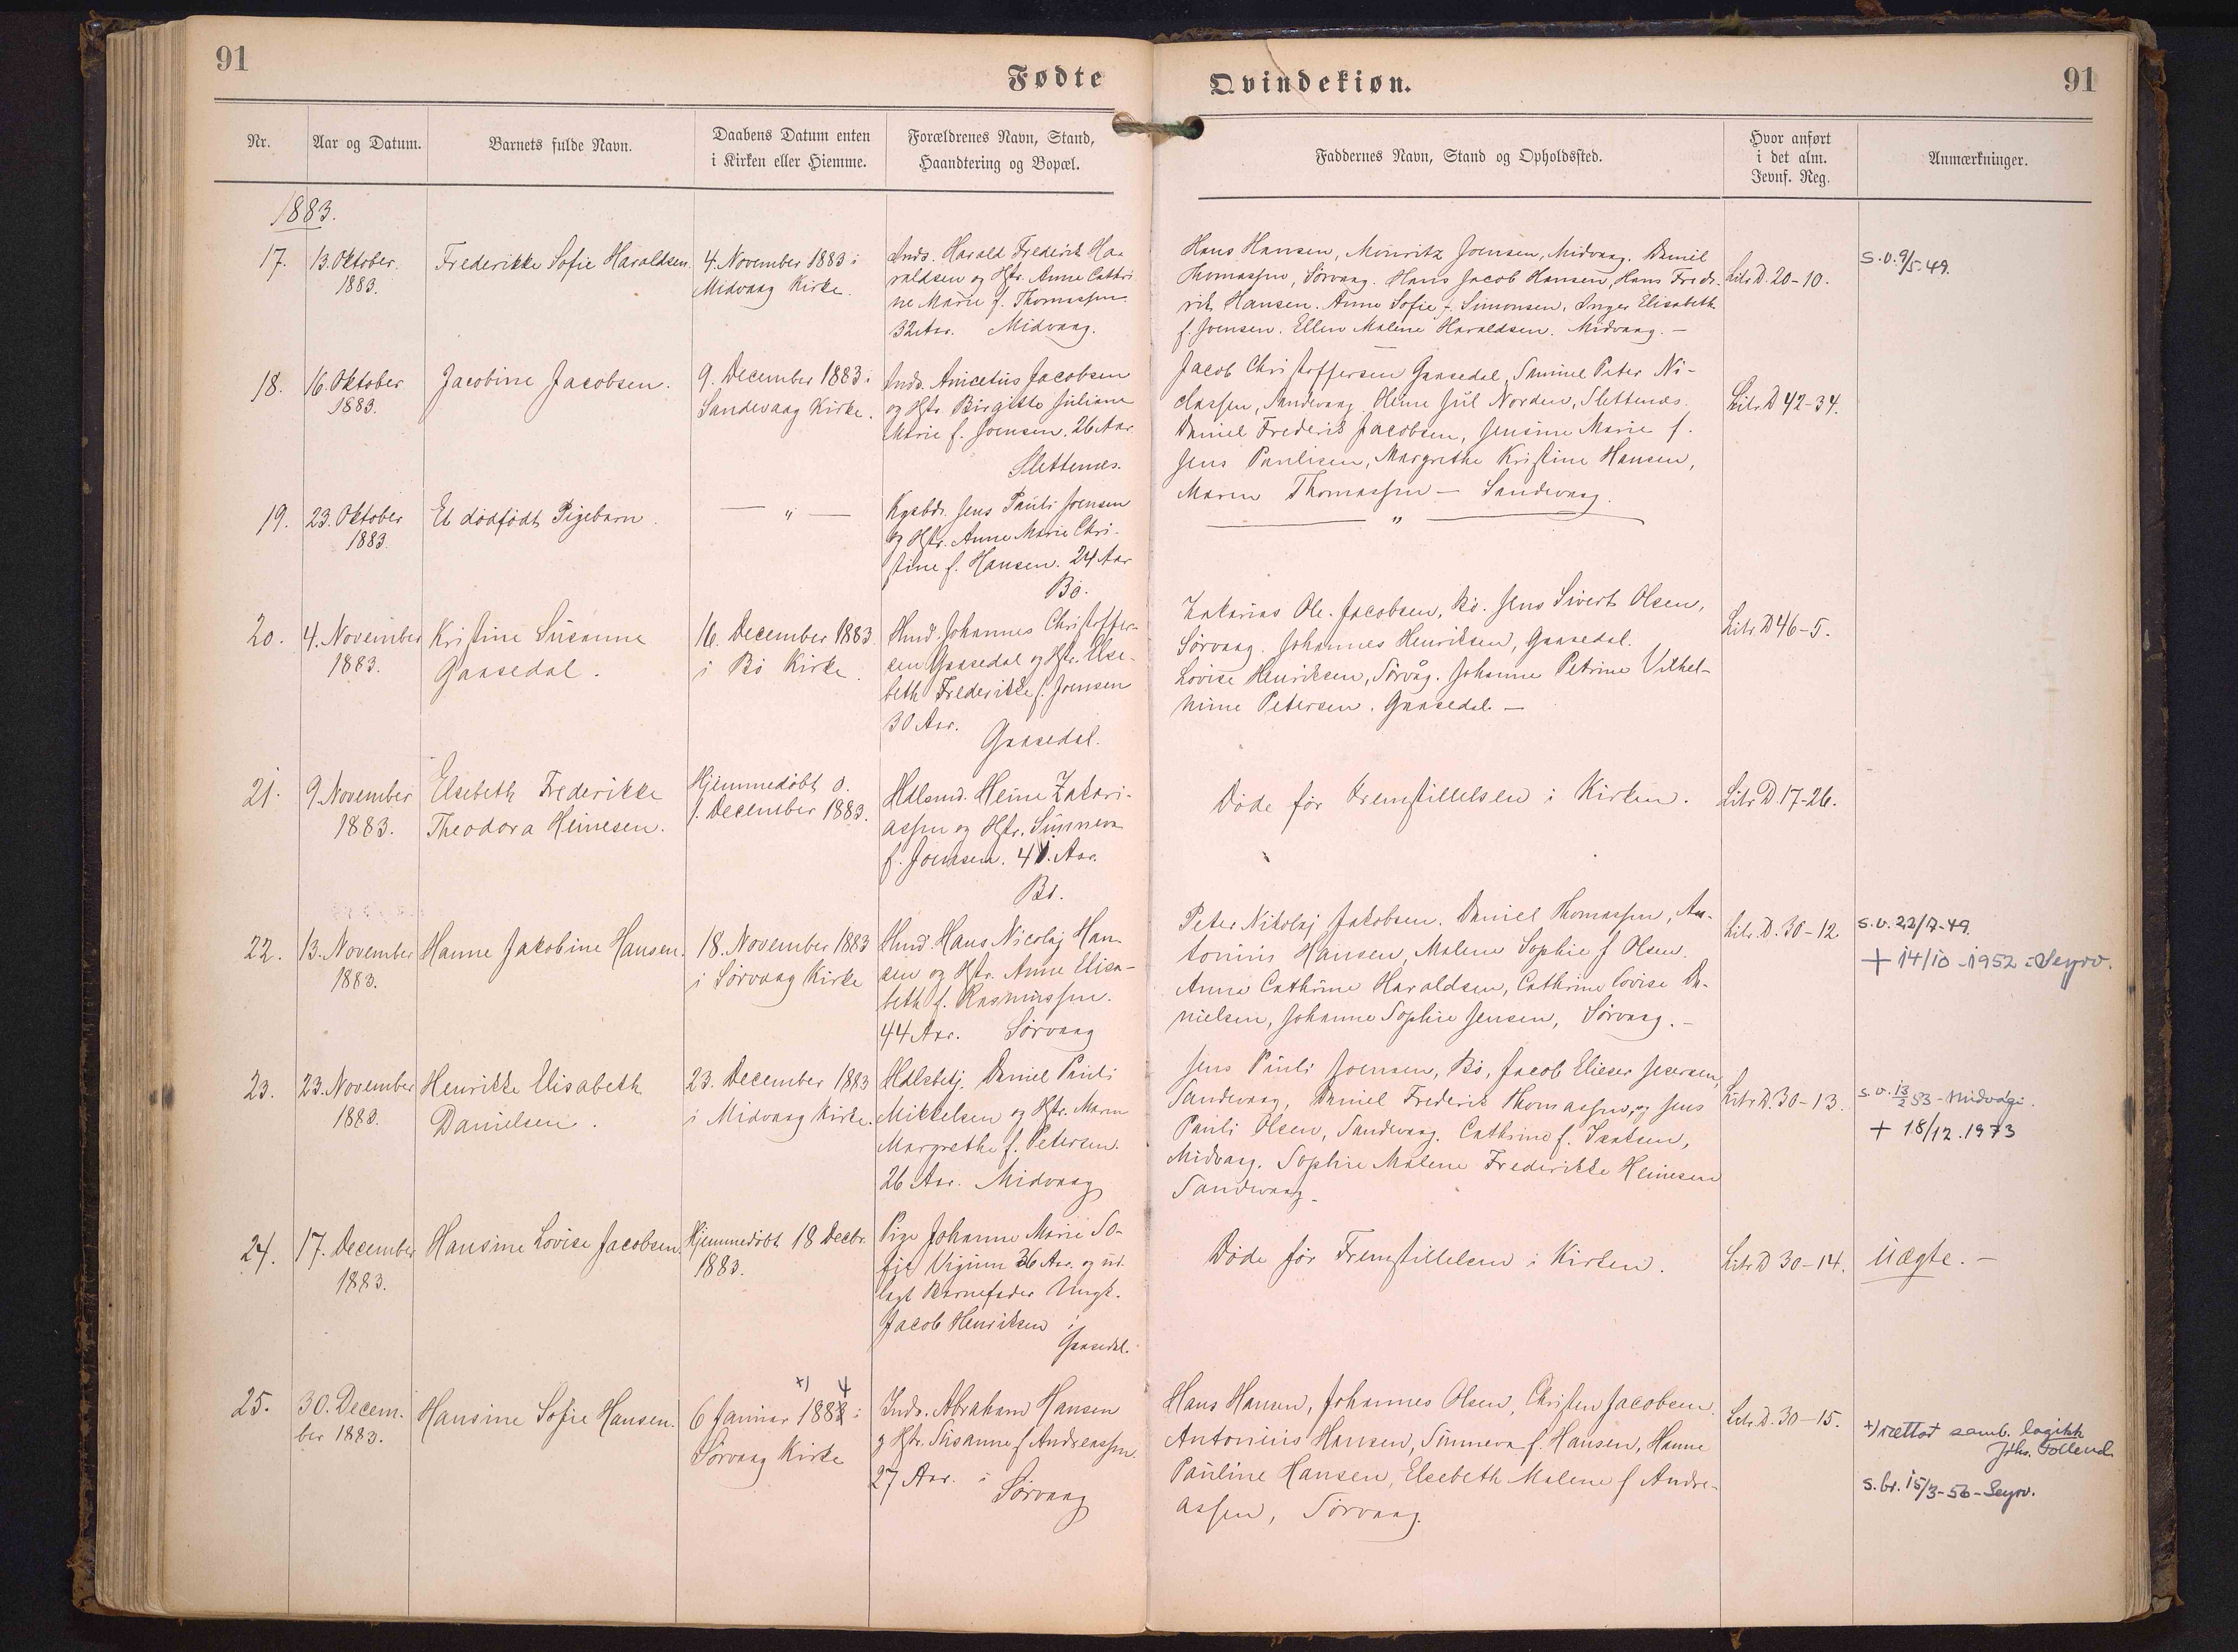 91
Fødte
Qvindekiøn.
91
Nr.
Aar og Datum.
Barnets fulde Navn.
Daabens Datum enten
i Kirken eller Hiemme.
Forældrenes Navn, Stand,
Haandtering og Bopæl.
Faddernes Navn, Stand og Opholdssted.
Hvor anført
i det alm.
Jevnf. Reg.
Anmærkninger.
1883.
17.
13. Oktober
1883.
Frederikke Sofie Haraldsen.
4. November 1883 i
Midvaag Kirke.
Inds. Harald Frederik Ha-
raldsen og Hstr. Anne Cathri-
ne Marie f. Thomassen
32 Aar. Midvaag.
Hans Hansen, Mouritz Joensen, Midvaag. Daniel
Thomassen, Sørvaag. Hans Jacob Hansen, Hans Frede-
rik Hansen. Anne Sofie f. Simonsen, Inger Elisabeth
f. Joensen. Ellen Malene Haraldsen. Midvaag. —
Litr. D. 20-10.
s.v. 9/5-49.
18.
16. Oktober
1883.
Jacobine Jacobsen.
9. December 1883 i
Sandevaag Kirke.
Inds. Anicetus Jacobsen
og Hstr. Birgitte Juliane
Marie f. Joensen. 26 Aar
Slettenes.
Jacob Christoffersen Gaasedal, Samuel Peter Ni-
classen, Sandevaag. Heine Jul Norden, Slettenæs.
Daniel Frederik Jacobsen, Jensine Marie f.
Jens Paulisen, Margrethe Kristine Hansen,
Maren Thomassen — Sandevaag.
Litr. D 42-34.
19.
23. Oktober
1883.
Et dødfødt Pigebarn.
— " —
Kgsbdr. Jens Pauli Joensen
og Hstr. Anne Marie Chri-
stine f. Hansen. 24 Aar
Bø.
— " —
20.
4. November
1883.
Kristine Susanne
Gaasedal.
16. December 1883
i Bø Kirke.
Hmd. Johannes Christoffer-
sen Gaasedal og Hstr. Else-
beth Frederikke f. Joensen
30 Aar.
Gaasedal.
Zakarias Ole Jacobsen, Bø. Jens Sivert Olsen,
Sørvaag. Johannes Henriksen, Gaasedal.
Lovise Henriksen, Sørvåg. Johanne Petrine Vilhel-
mine Petersen. Gaasedal. —
Litr. D 46-5.
21.
9. November
1883.
Elsebeth Frederikke
Theodora Heinesen.
Hjemmedøbt d.
1. December 1883.
Hdlsmd. Heine Zakari-
assen og Hstr. Sunneva
f. Joensen. 41. Aar.
Bø.
Døde før Fremstillelsen i Kirken.
Litr. D. 17-26.
22.
13. November
1883.
Hanne Jakobine Hansen.
18. November 1883
i Sørvaag Kirke
Hmd. Hans Nicolaj Han-
sen og Hstr. Anne Elisa-
beth f. Rasmussen.
44 Aar. Sørvaag
Peter Nikolaj Jakobsen. Daniel Thomassen, An-
tonius Hansen, Malene Sophie f Olsen.
Anne Cathrine Haraldsen, Cathrine Lovise Da-
nielsen, Johanne Sophie Jensen, Sørvaag. —
Litr. D. 30-12
s.v. 22/7-49.
+ 14/10-1952 - Seyrv.
23.
23. November
1883.
Henrikke Elisabeth
Danielsen.
23. December 1883
i Midvaag Kirke.
Hdlsbetj. Daniel Pauli
Mikkelsen og Hstr. Maren
Margrethe f. Petersen.
26 Aar. Midvaag
Jens Pauli Joensen, Bø, Jacob Elieser
Sandevaag, Daniel Frederik Thomassen, og Jens
Pauli Olsen, Sandevaag. Cathrine f. Isaksen,
Midvaag. Sophie Malene Frederikke Heinesen
Sandevaag.
Litr. D. 30-13.
s.v. 13/2 53 - Miðvági.
+ 18/12. 1973
24.
17. December
1883.
Hansine Lovise Jacobsen
Hjemmedøbt 18 Decbr.
1883.
Pige Johanne Marie So-
fie 36 Aar. og ud-
lagt Barnefader Ungk.
Jacob Henriksen i
Gaasedal.
Døde før Fremstillelsen i Kirken.
Litr. D 30-14.
Uægte. —
25.
30. Decem-
ber 1883.
Hansine Sofie Hansen.
+) 4
6 Januar 1883 i
Sørvaag Kirke
Inds. Abraham Hansen
og Hstr. Susanne f Andreassen.
27 Aar. i
Sørvaag
Hans Hansen, Johannes Olsen, Christen Jacobsen.
Antonius Hansen, Sunneva f. Hansen, Hanne
Pauline Hansen, Elsebeth Malene f Andre-
assen, Sørvaag.
Litr. D. 30-15.
+) rættað samb. logikk
s.br. 15/3-56 - Seyrv.